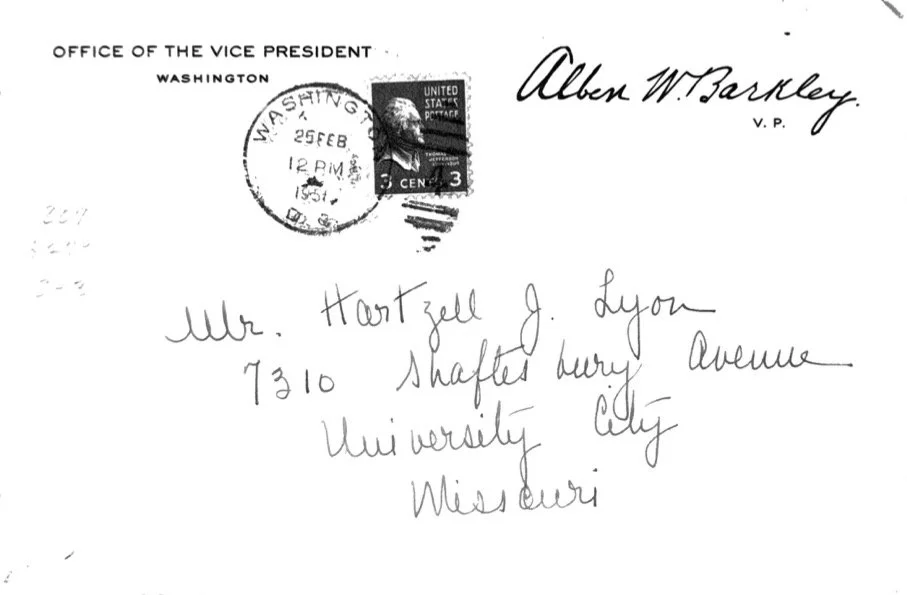 OFFICE OF THE VICE PRESIDENT
WASHINGTON
Alben W. Barkley.
V. P.
WASHINGTON
25 FEB
12 PM
1951
D. C.
UNITED
STATES
POSTAGE
THOMAS
JEFFERSON
3 CEN 3
Mr. Hartzell J. Lyon
7310 Shaftesbury Avenue
University City
Missouri